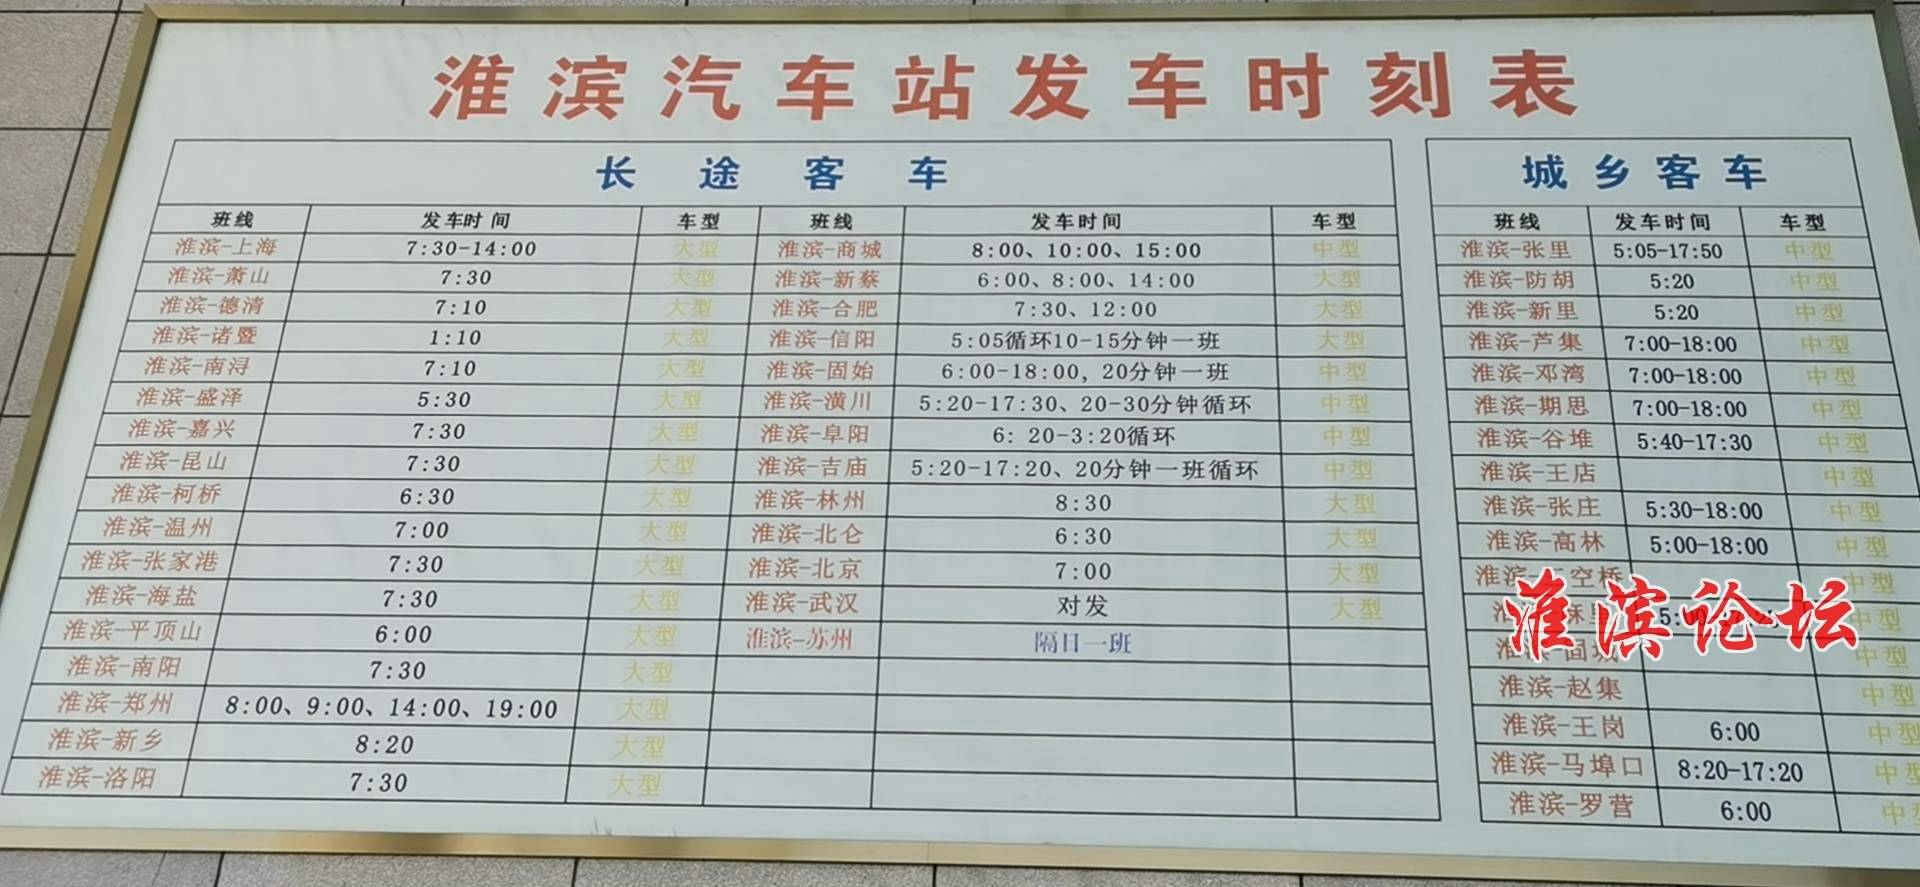 淮滨汽车站发车时刻表
长途客车
班线 发车时间 车型 班线 发车时间 车型
淮滨-上海 7:30-14:00 大型 淮滨-商城 8:00、10:00、15:00 中型
淮滨-萧山 7:30 大型 淮滨-新蔡 6:00、8:00、14:00 大型
淮滨-德清 7:10 大型 淮滨-合肥 7:30、12:00 大型
淮滨-诸暨 1:10 大型 淮滨-信阳 5:05循环10-15分钟一班 大型
淮滨-南浔 7:10 大型 淮滨-固始 6:00-18:00, 20分钟一班 中型
淮滨-盛泽 5:30 大型 淮滨-潢川 5:20-17:30、20-30分钟循环 中型
淮滨-嘉兴 7:30 大型 淮滨-阜阳 6: 20-3:20循环 中型
淮滨-昆山 7:30 大型 淮滨-吉庙 5:20-17:20、20分钟一班循环 中型
淮滨-柯桥 6:30 大型 淮滨-林州 8:30 大型
淮滨-温州 7:00 大型 淮滨-北仑 6:30 大型
淮滨-张家港 7:30 大型 淮滨-北京 7:00 大型
淮滨-海盐 7:30 大型 淮滨-武汉 对发 大型
淮滨-平顶山 6:00 大型 淮滨-苏州 隔日一班
淮滨-南阳 7:30 大型
淮滨-郑州 8:00、9:00、14:00、19:00 大型
淮滨-新乡 8:20 大型
淮滨-洛阳 7:30 大型
城乡客车
班线 发车时间 车型
淮滨-张里 5:05-17:50 中型
淮滨-防胡 5:20 中型
淮滨-新里 5:20 中型
淮滨-芦集 7:00-18:00 中型
淮滨-邓湾 7:00-18:00 中型
淮滨-期思 7:00-18:00 中型
淮滨-谷堆 5:40-17:30 中型
淮滨-王店 中型
淮滨-张庄 5:30-18:00 中型
淮滨-高林 5:00-18:00 中型
淮滨- 空桥 中型
中型
中型
淮滨-赵集 中型
淮滨-王岗 6:00 中型
淮滨-马埠口 8:20-17:20 中型
淮滨-罗营 6:00 中型
淮滨论坛